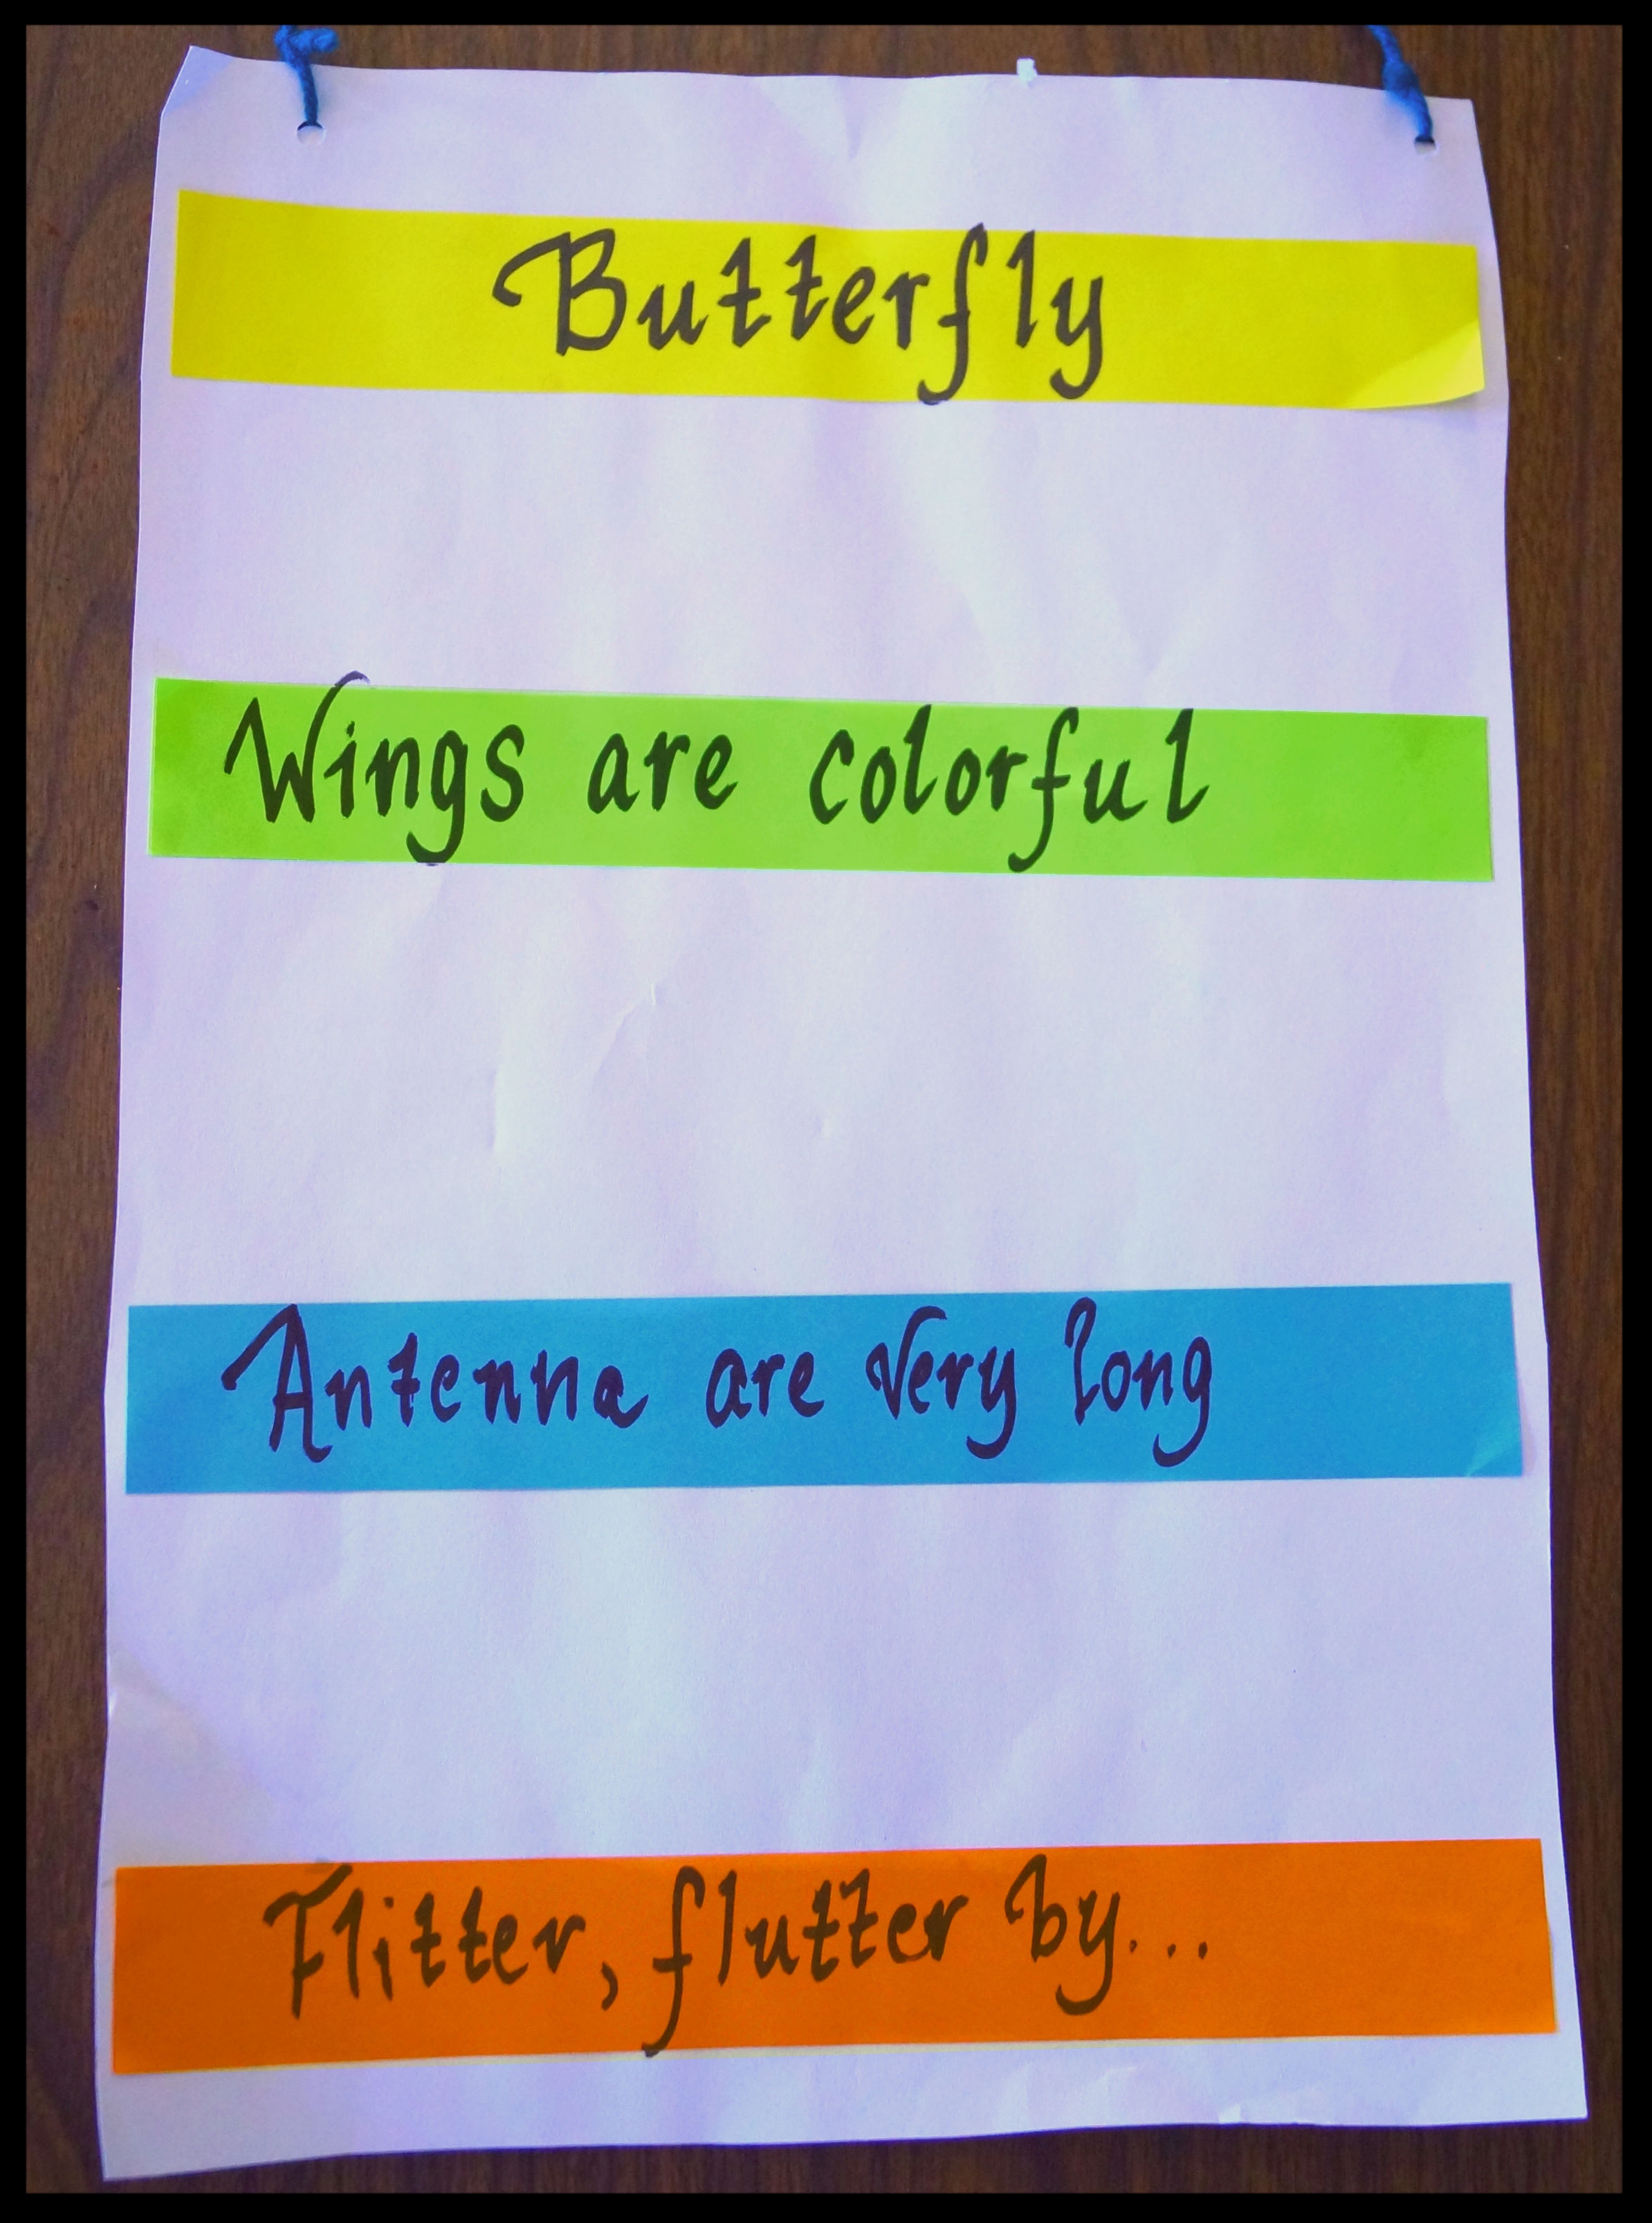 Butterfly
Wings are colorful
Antenna are very long
Flitter, flutter by...